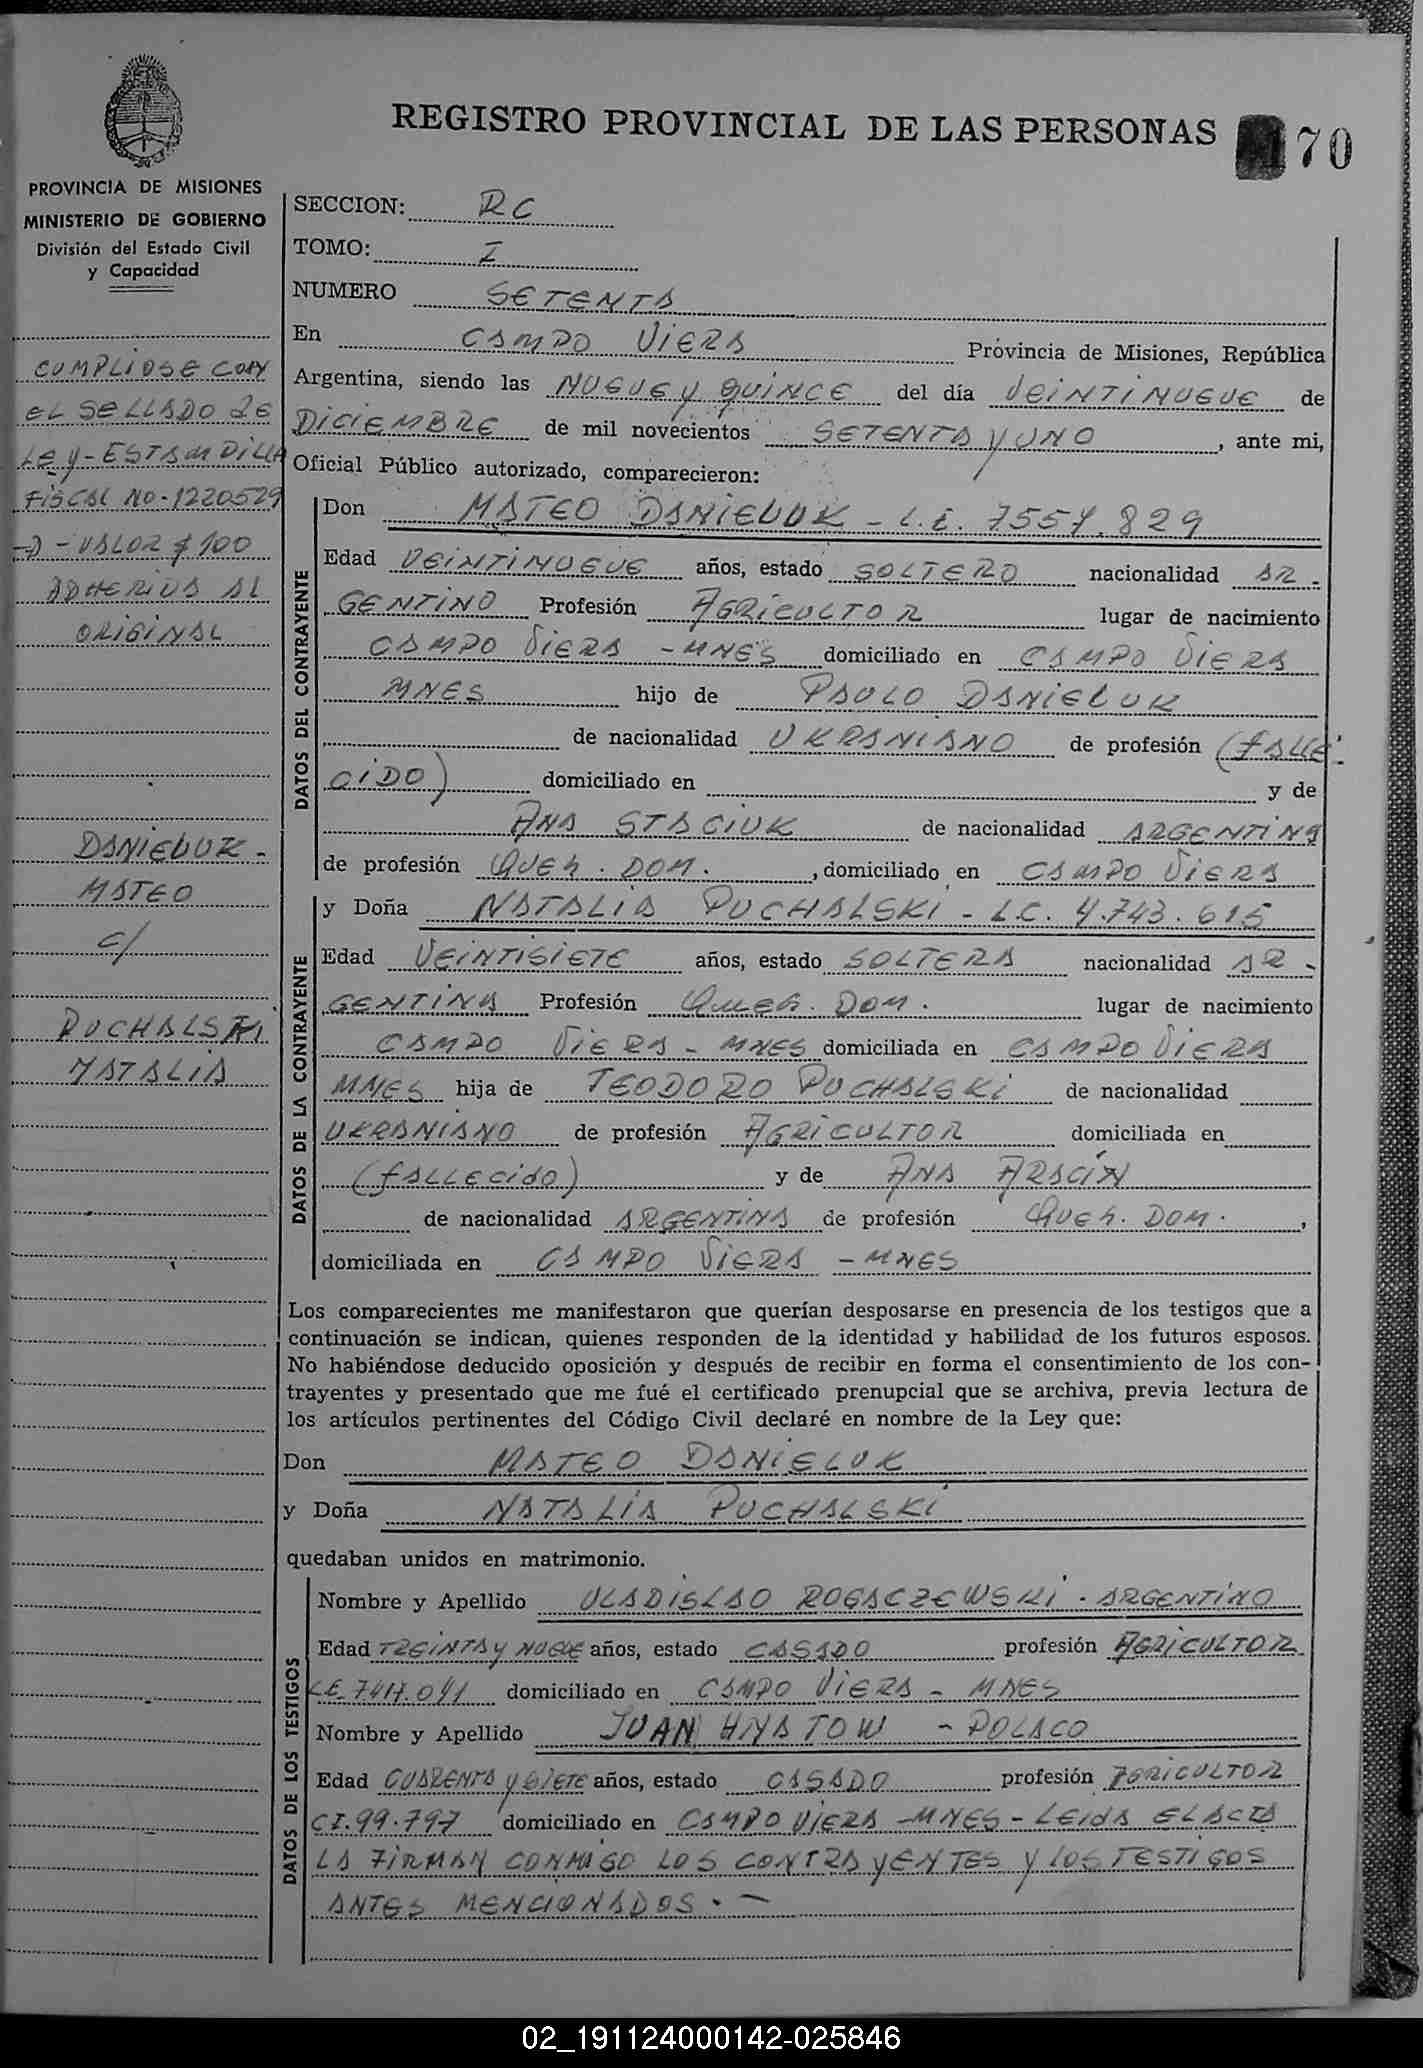 REGISTRO PROVINCIAL DE LAS PERSONAS 70
PROVINCIA DE MISIONES
MINISTERIO DE GOBIERNO
División del Estado Civil
y Capacidad
CUMPLIOSE CON
EL SELLADO DE
LEY-ESTAMPILLA
FISCAL NO-1220529
-VALOR $ 100
ADHERIDA AL
ORIGINAL
DANIELUK-
MATEO
c/
PUCHALSKI
NATALIA
SECCION: RC
TOMO: I
NUMERO SETENTA
En CAMPO VIERA Provincia de Misiones, República
Argentina, siendo las NUEVE y QUINCE del día VEINTINUEVE de
DICIEMBRE de mil novecientos SETENTA y UNO, ante mi,
Oficial Público autorizado, comparecieron:
DATOS DEL CONTRAYENTE
Don MATEO DANIELUK - L.E. 7557.829
Edad VEINTINUEVE años, estado SOLTERO nacionalidad AR-
GENTINO Profesión AGRICULTOR lugar de nacimiento
CAMPO VIERA -MNES domiciliado en CAMPO VIERA
MNES hijo de PAULO DANIELUK
de nacionalidad UKRANIANO de profesión (FALLE-
CIDO) domiciliado en y de
ANA STACIUK de nacionalidad ARGENTINA
de profesión QUEH. DOM. , domiciliado en CAMPO VIERA
DATOS DE LA CONTRAYENTE
y Doña NATALIA PUCHALSKI - L.C. 4.743.615
Edad VEINTISIETE años, estado SOLTERA nacionalidad AR-
GENTINA Profesión QUEH. DOM. lugar de nacimiento
CAMPO VIERA - MNES domiciliada en CAMPO VIERA
MNES hija de TEODORO PUCHALSKI de nacionalidad
UKRANIANO de profesión AGRICULTOR domiciliada en
(fALLECIDO) y de ANA
de nacionalidad ARGENTINA de profesión QUEH. DOM. ,
domiciliada en CAMPO VIERA - MNES
Los comparecientes me manifestaron que querían desposarse en presencia de los testigos que a
continuación se indican, quienes responden de la identidad y habilidad de los futuros esposos.
No habiéndose deducido oposición y después de recibir en forma el consentimiento de los con-
trayentes y presentado que me fué el certificado prenupcial que se archiva, previa lectura de
los artículos pertinentes del Código Civil declaré en nombre de la Ley que:
Don MATEO DANIELUK
y Doña NATALIA PUCHALSKI
quedaban unidos en matrimonio.
DATOS DE LOS TESTIGOS
Nombre y Apellido VLADISLAO ROGACZEWSKI - ARGENTINO
Edad TREINTA y NUEVE años, estado CASADO profesión AGRICULTOR
L.E. 7417.041 domiciliado en CAMPO VIERA - MNES
Nombre y Apellido JUAN HNATOW - POLACO
Edad CUARENTA y SIETE años, estado CASADO profesión AGRICULTOR
CI. 99.797 domiciliado en CAMPO VIERA -MNES - LEIDA EL ACTA
LA FIRMAN CONMIGO LOS CONTRAYENTES y LOS TESTIGOS
ANTES MENCIONADOS. -
02_191124000142-025846